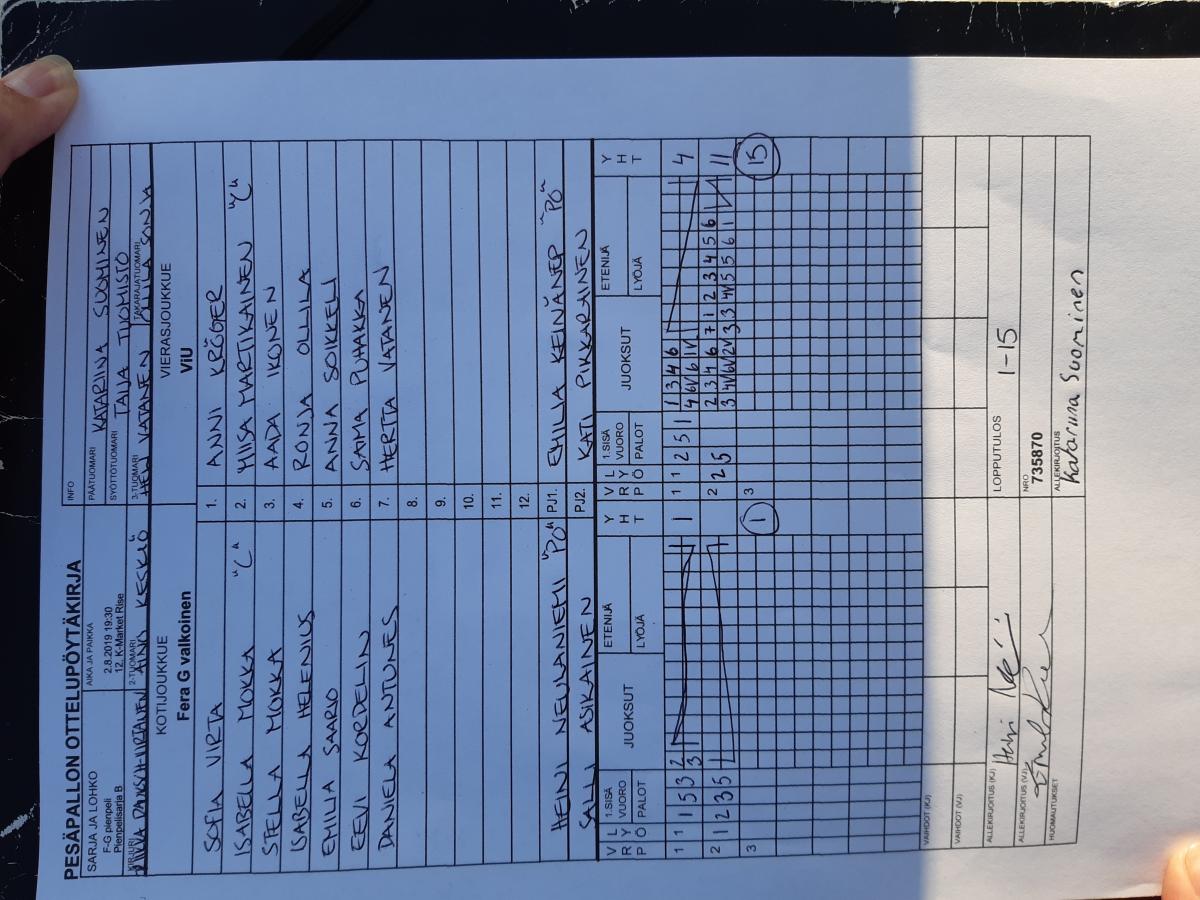 PESÄPALLON OTTELUPÖYTÄKIRJA
SARJA JA LOHKO
F-G pienpeli
Pienpelisarja B
AIKA JA PAIKKA
2.8.2019 19:30
12. K-Market Rise
INFO
PÄÄTUOMARI KATARIINA SUOMINEN
SYÖTTÖTUOMARI TAIJA TUOMISTO
KIRJURI
2-TUOMARI AINO KESKIÖ
3-TUOMARI VATANEN
TAKARAJATUOMARI OLLILA SONJA
KOTIJOUKKUE
Fera G valkoinen
VIERASJOUKKUE
ViU
SOFIA VIRTA 1. ANNI KRÖGER
ISABELLA MOKKA "C" 2. MIISA MARTIKAINEN "C"
STELLA MOKKA 3. AADA IKONEN
ISABELLA HELENIUS 4. RONJA OLLILA
EMILIA SAARIO 5. ANNA SOIKKELI
EEVI KORDELIN 6. SAIMA PUHAKKA
DANIELA ANTUNES 7. HERTTA VATANEN
8.
9.
10.
11.
12.
HEINI NEULANIEMI "PO" PJ1. EMILIA KEINÄNEN "PO"
SALLI ASIKAINEN PJ2. KATI PIKKARAINEN
V L 1.SISÄ JUOKSUT ETENIJÄ Y V L 1.SISÄ JUOKSUT ETENIJÄ Y
R Y VUORO H R Y VUORO H
P Ö PALOT LYÖJÄ T P Ö PALOT LYÖJÄ T
1 1 1 5 3 2 1 1 1 2 5 1 1 3 4 6 4
3 4 6V 6 1V
2 1 2 3 5 1 2 2 5 2 3 4 6 7 1 2 3 4 5 6 11
3 4V 6V 2V 3 3 4V 5 5 6 1
3 1 3 15
VAIHDOT (KJ)
VAIHDOT (VJ)
ALLEKIRJOITUS (KJ)
LOPPUTULOS 1-15
ALLEKIRJOITUS (VJ)
NRO
735870
HUOMAUTUKSET
ALLEKIRJOITUS
Katariina Suominen